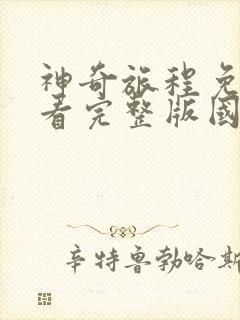 神奇旅程免
看完整版国
辛特鲁勃哈斯